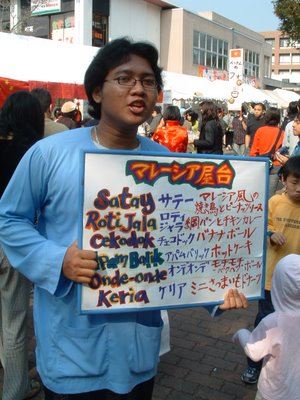 マレーシア屋台
Satay サテー マレーシア風の
焼鳥とピーナッツソース
Roti Jala ロティ
ジャラ 網パンとチキンカレー
Cekodok チェコドック バナナボール
Apam Balik アパムバリック ホットケーキ
Onde-onde オンデオンデ モチモチ
ボール
Keria ケリア ミニさつまいもドーナツ